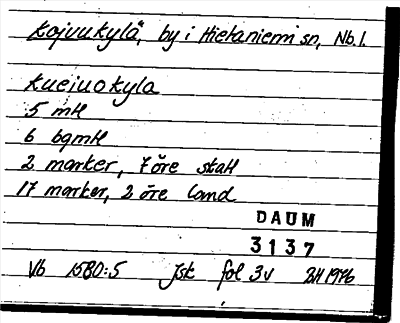 Kojvukylä, by i Hietaniemi sn, Nb. l.
Kuejuokyla
5 mH
6 bgmH
2 marker, 7 öre staH
17 marker, 2 öre land
DAUM
3137
Vb 1580:5 Jsk fol 3v BH 1976